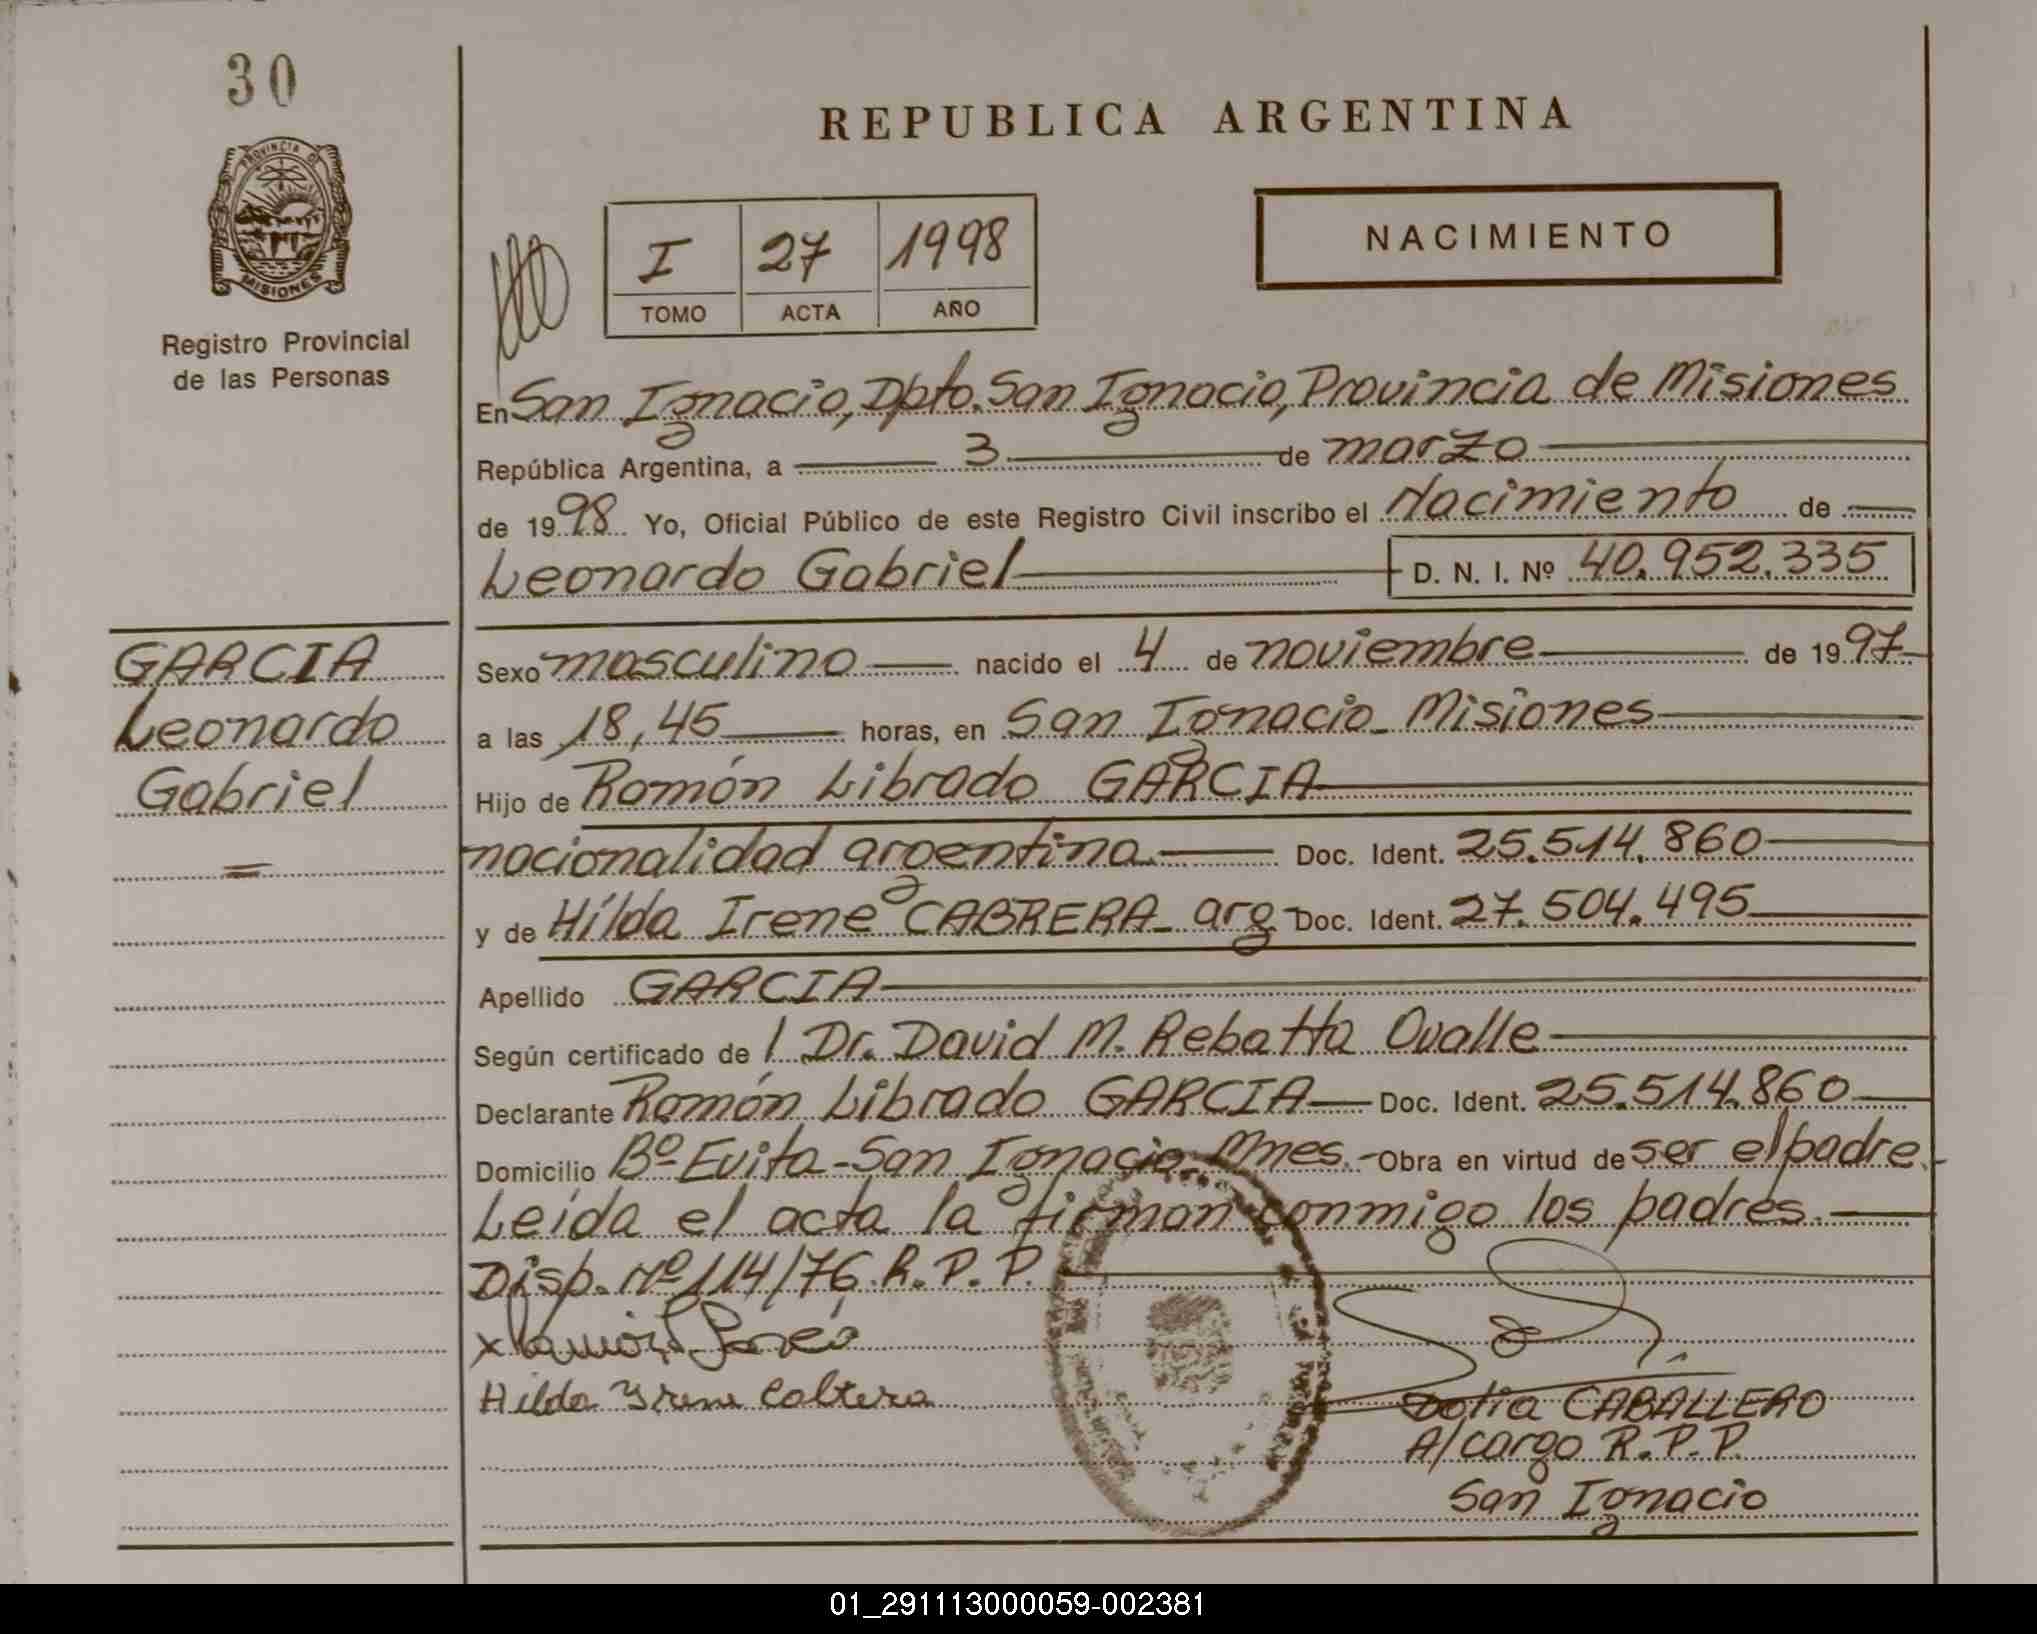 30
PROVINCIA DE
MISIONES
Registro Provincial
de las Personas
REPUBLICA ARGENTINA
I 27 1998
TOMO ACTA AÑO
NACIMIENTO
En San Ignacio, Dpto. San Ignacio, Provincia de Misiones
República Argentina, a 3 de marzo
de 1998 Yo, Oficial Público de este Registro Civil inscribo el Nacimiento de
Leonardo Gabriel D. N. I. Nº 40.952.335
GARCIA
Leonardo
Gabriel
=
Sexo masculino nacido el 4 de noviembre de 1997
a las 18,45 horas, en San Ignacio - Misiones
Hijo de Ramón Librado GARCIA
nacionalidad argentina. Doc. Ident. 25.514.860
y de Hilda Irene CABRERA - arg. Doc. Ident. 27.504.495
Apellido GARCIA
Según certificado de / Dr. David M. Rebatta Ovalle
Declarante Ramón Librado GARCIA Doc. Ident. 25.514.860
Domicilio Bº Evita - San Ignacio - Mnes. - Obra en virtud de ser el padre.
Leída el acta la firman conmigo los padres.
Disp. Nº 114/76 R.P.P.
x Ramón
Hilda Yrene Cabrera
CABALLERO
A/cargo R.P.P.
San Ignacio
01_291113000059-002381